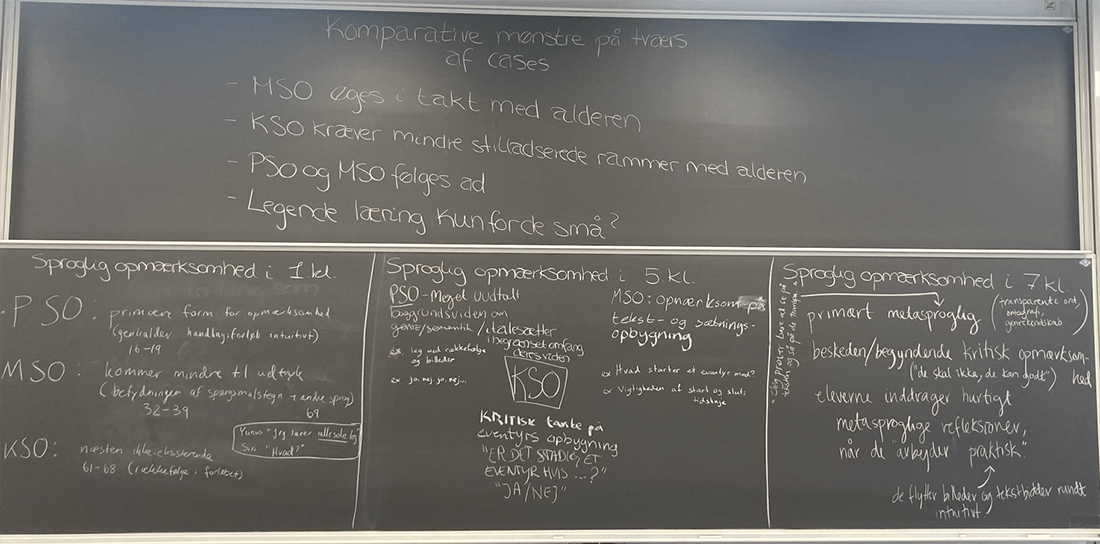 Komparative mønstre på tværs
af cases
- MSO øges i takt med alderen
- KSO kræver mindre stilladserede rammer med alderen
- PSO og MSO følges ad
- Legende læring kun for de små?
Sproglig opmærksomhed i 1 kl.
PSO: primære form for opmærksomhed
(genkalder handlingsforløb intuitivt)
16-19
MSO: kommer mindre til udtryk
(betydningen af spørgsmålstegn + andre sprog)
32-39 69
"Jeg lærer
"Hvad?"
KSO: næsten ikke-eksisterende
61-68 (rækkefølge i forløbet)
Sproglig opmærksomhed i 5 kl.
PSO - Meget uudtalt
baggrundsviden om
genre/semantik/italesætter
i begrænset omfang
deres viden
ex. leg med rækkefølge
og billeder
ex jo, nej, jo, nej...
MSO: opmærksom på
tekst- og sætnings-
opbygning
ex Hvad starter et eventyr med?
ex Vigtigheden af start og slut,
KSO
KRITISK tanke på
eventyrs opbygning
"ER DET STADIG ET
EVENTYR HVIS ...?"
"JA/NEJ"
Sproglig opmærksomhed i 7 kl.
primært metasproglig
(transparente ord,
ortografi,
genrekendskab)
beskeden/begyndende kritisk opmærksom-
hed
("de skal ikke, de kan godt")
eleverne inddrager hurtigt
metasproglige refleksioner,
når de arbejder "praktisk"
de flytter billeder og tekstbidder rundt
intuitivt
"Jeg prøver bare at se på